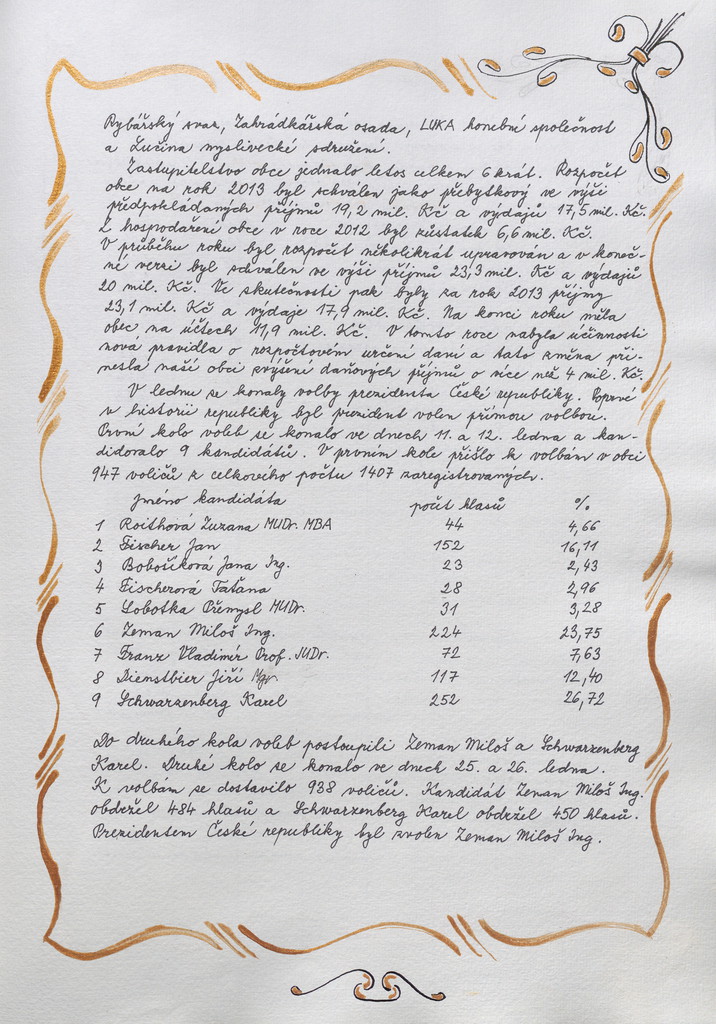 Rybářský svaz, Zahrádkářská osada, LUKA honební společnost
a Lučina myslivecké sdružení.
Zastupitelstvo obce jednalo letos celkem 6 krát. Rozpočet
obce na rok 2013 byl schválen jako přebytkový ve výši
předpokládaných příjmů 19,2 mil. Kč a výdajů 17,5 mil. Kč.
Z hospodaření obce v roce 2012 byl zůstatek 6,6 mil. Kč.
V průběhu roku byl rozpočet několikrát upravován a v koneč-
né verzi byl schválen ve výši příjmů 23,3 mil. Kč a výdajů
20 mil. Kč. Ve skutečnosti pak byly za rok 2013 příjmy
23,1 mil. Kč a výdaje 17,9 mil. Kč. Na konci roku měla
obec na účtech 11,9 mil. Kč. V tomto roce nabyla účinnosti
nová pravidla o rozpočtovém určení daní a tato změna při-
nesla naší obci zvýšení daňových příjmů o více než 4 mil. Kč.
V lednu se konaly volby prezidenta České republiky. Poprvé
v historii republiky byl prezident volen přímou volbou.
První kolo voleb se konalo ve dnech 11. a 12. ledna a kan-
didovalo 9 kandidátů. V prvním kole přišlo k volbám v obci
947 voličů z celkového počtu 1407 zaregistrovaných.
Jméno kandidáta počet hlasů %
1 Roithová Zuzana MUDr. MBA 44 4,66
2 Fischer Jan 152 16,11
3 Bobošíková Jana Ing. 23 2,43
4 Fischerová Taťana 28 2,96
5 Sobotka Přemysl MUDr. 31 3,28
6 Zeman Miloš Ing. 224 23,75
7 Franz Vladimír Prof. JUDr. 72 7,63
8 Dienstbier Jiří Mgr. 117 12,40
9 Schwarzenberg Karel 252 26,72
Do druhého kola voleb postoupili Zeman Miloš a Schwarzenberg
Karel. Druhé kolo se konalo ve dnech 25. a 26. ledna.
K volbám se dostavilo 938 voličů. Kandidát Zeman Miloš Ing.
obdržel 484 hlasů a Schwarzenberg Karel obdržel 450 hlasů.
Prezidentem České republiky byl zvolen Zeman Miloš Ing.